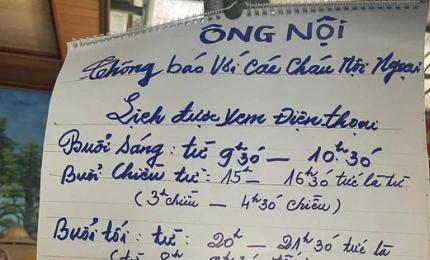 ÔNG NỘI
Thông báo Với Các Cháu Nội Ngoại
Lịch được Xem Điện thoại
Buổi Sáng: từ 9h30 — 10h30
Buổi Chiều từ: 15h — 16h30 tức là từ
(3h chiều — 4h30 chiều)
Buổi tối: từ: 20h — 21h30 tức là